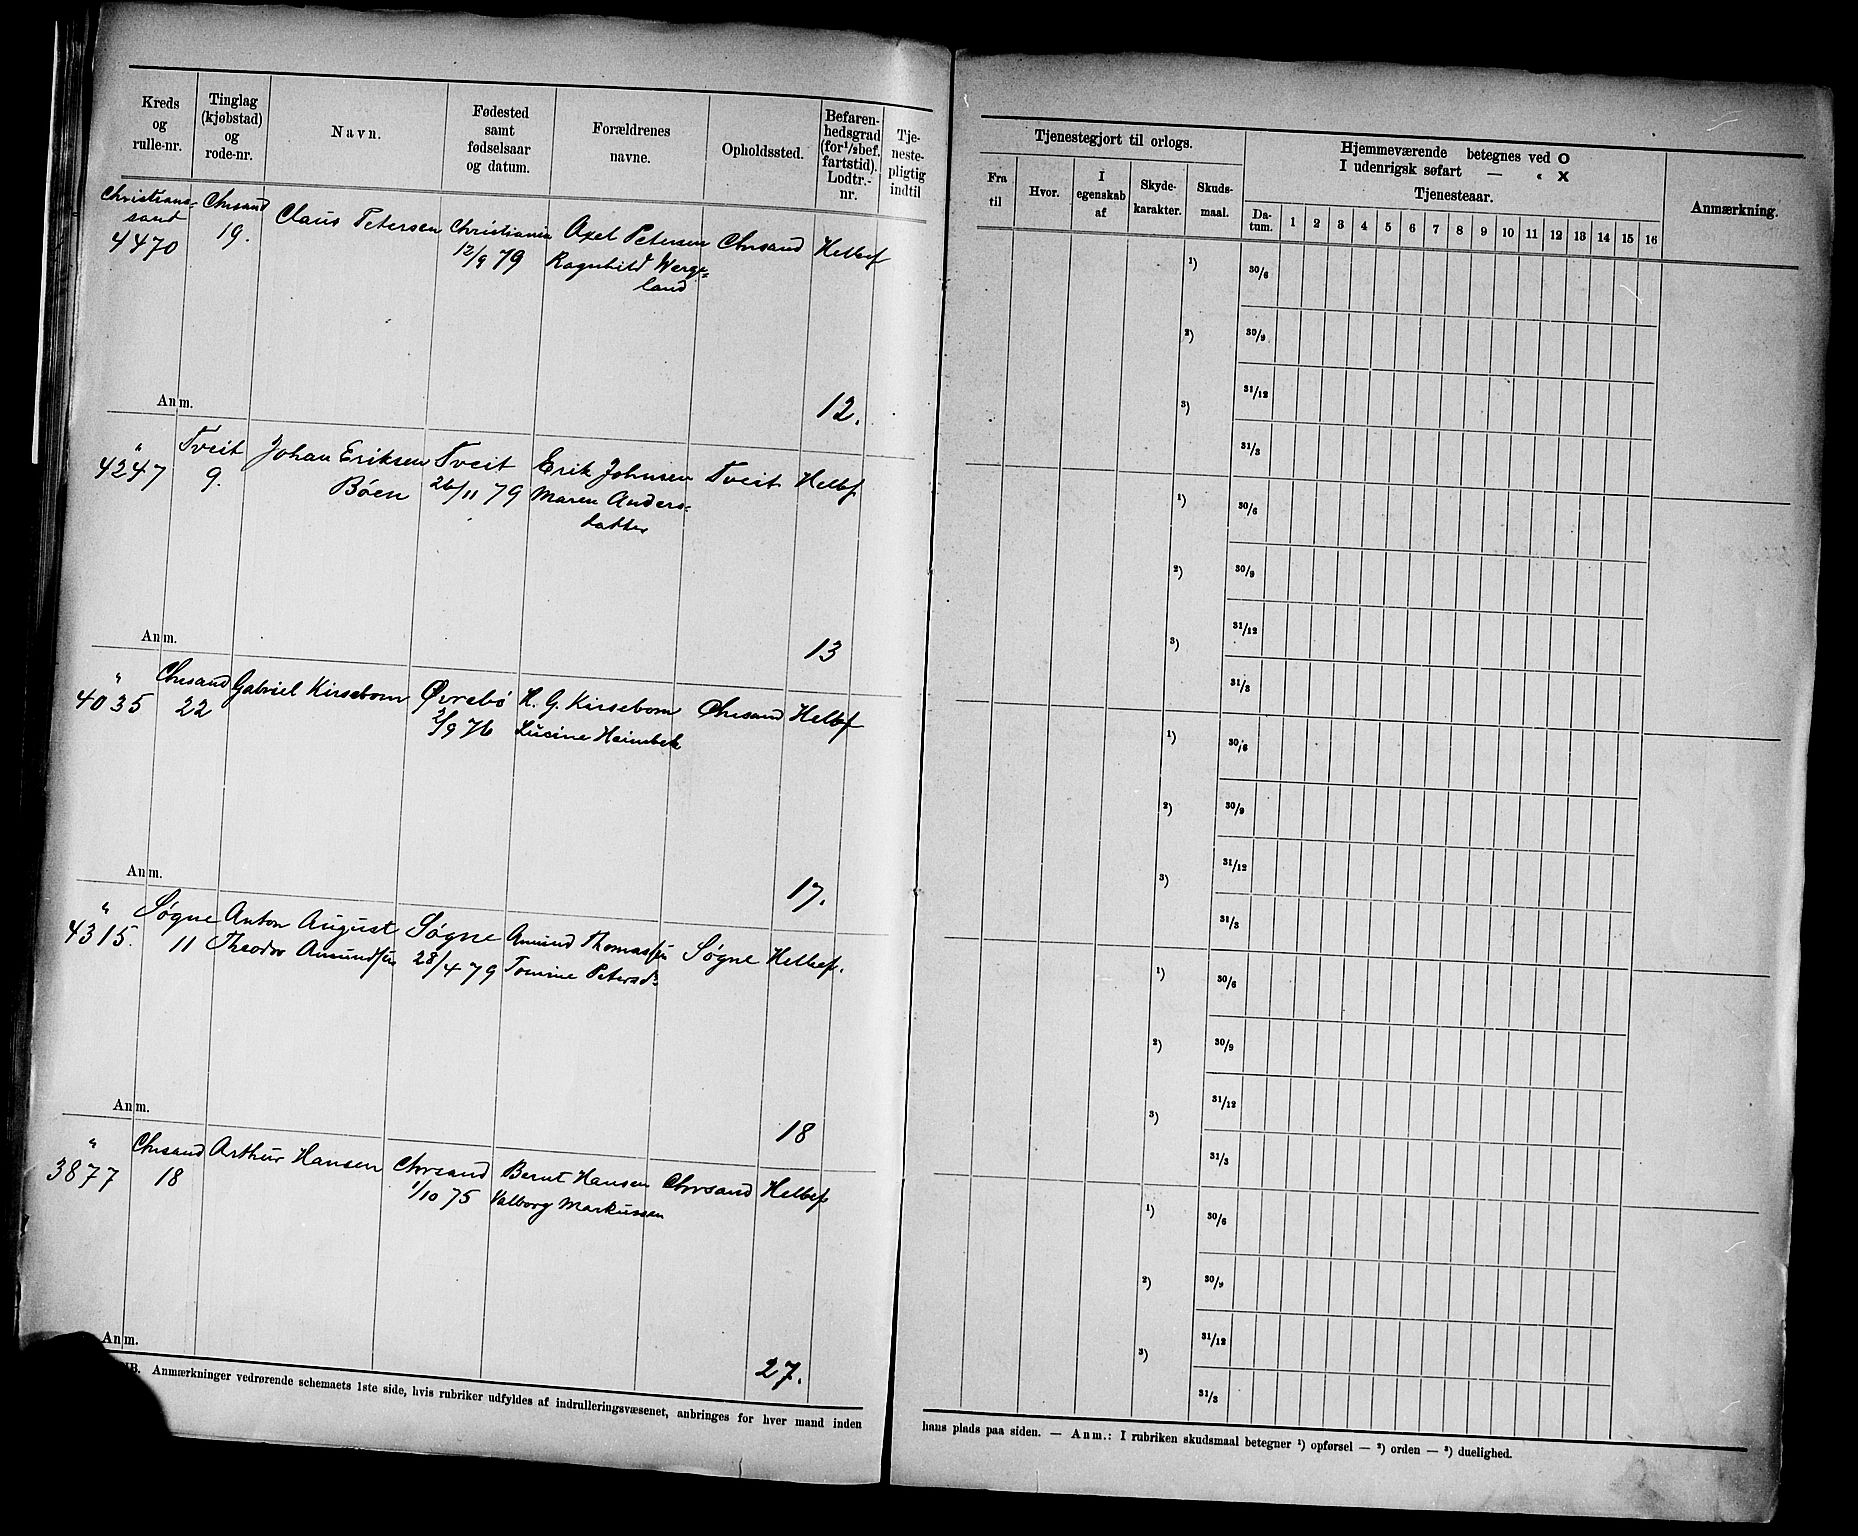 Kreds og rulle-nr.
Tinglag (kjøbstad) og rode-nr.
Navn.
Fødested samt fødselsaar og datum.
Forældrenes navne.
Opholdssted.
Befaren-hedsgrad (for ½ bef. fartstid). Lodtr.-nr.
Tje-neste-pligtig indtil
Christians-
sand
4470
Chrsand
19.
Claus Petersen
Christiania
12/9 79
Axel Petersen
Ragnhild Werge=
land
Chrsand
Helbef
12.
Anm.
"
4247
Tveit
9.
Johan Eriksen
Bøen
Tveit
26/11 79
Erik Johnsen
Maren Anders-
datter
Tveit
Helbf
13
Anm.
"
4035
Chrsand
22
Gabriel Kirsebom
Øvrebø
2/9 76
H. G. Kirsebom
Lusine Heimbek
Chrsand
Helbf
17.
Anm.
"
4315.
Søgne
11
Anton August
Theodor Amundsen
Søgne
28/4 79
Amund Thomassen
Tomine Petersd:
Søgne
Helbef.
18
Anm.
"
3877
Chrsand
18
Arthur Hansen
Chrsand
1/10 75
Bernt Hansen
Valborg Markussen
Chrsand
Helbef
27.
Anm.
NB. Anmærkninger vedrørende schemaets 1ste side, hvis rubriker udfyldes af indrulleringsvæsenet, anbringes for hver mand inden
Tjenestegjort til orlogs.
Fra til
Hvor.
I egenskab af
Skyde-karakter.
Skuds-maal.
Hjemmeværende betegnes ved O
I udenrigsk søfart — " X
Tjenesteaar.
Da-tum. 1 2 3 4 5 6 7 8 9 10 11 12 13 14 15 16
Anmærkning.
¹) 30/6
²) 30/9
³) 31/12
31/3
¹) 30/6
²) 30/9
³) 31/12
31/3
¹) 30/6
²) 30/9
³) 31/12
31/3
¹) 30/6
²) 30/9
³) 31/12
31/3
¹) 30/6
²) 30/9
³) 31/12
31/3
hans plads paa siden. — Anm.: I rubriken skudsmaal betegner ¹) opførsel — ²) orden — ³) duelighed.